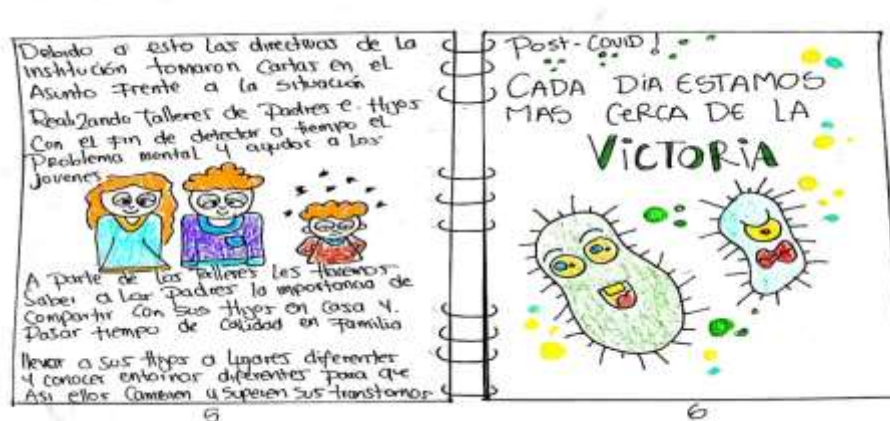 Debido a esto las directivas de la
institución tomaron Cartas en el
Asunto Frente a la situación
Realizando talleres de Padres e Hijos
Con el fin de detectar a tiempo el
Problema mental y ayudar a los
jovenes
A Parte de los talleres les Haremos
Saber a Los Padres la importancia de
Compartir Con sus Hijos en casa y.
Pasar tiempo de Calidad en Familia
llevar a sus Hijos a Lugares diferentes
y conocer entornos diferentes para que
Asi ellos Cambien y superen sus transtornos
5
Post-COVID!
CADA DIA ESTAMOS
MAS CERCA DE LA
VICTORIA
6